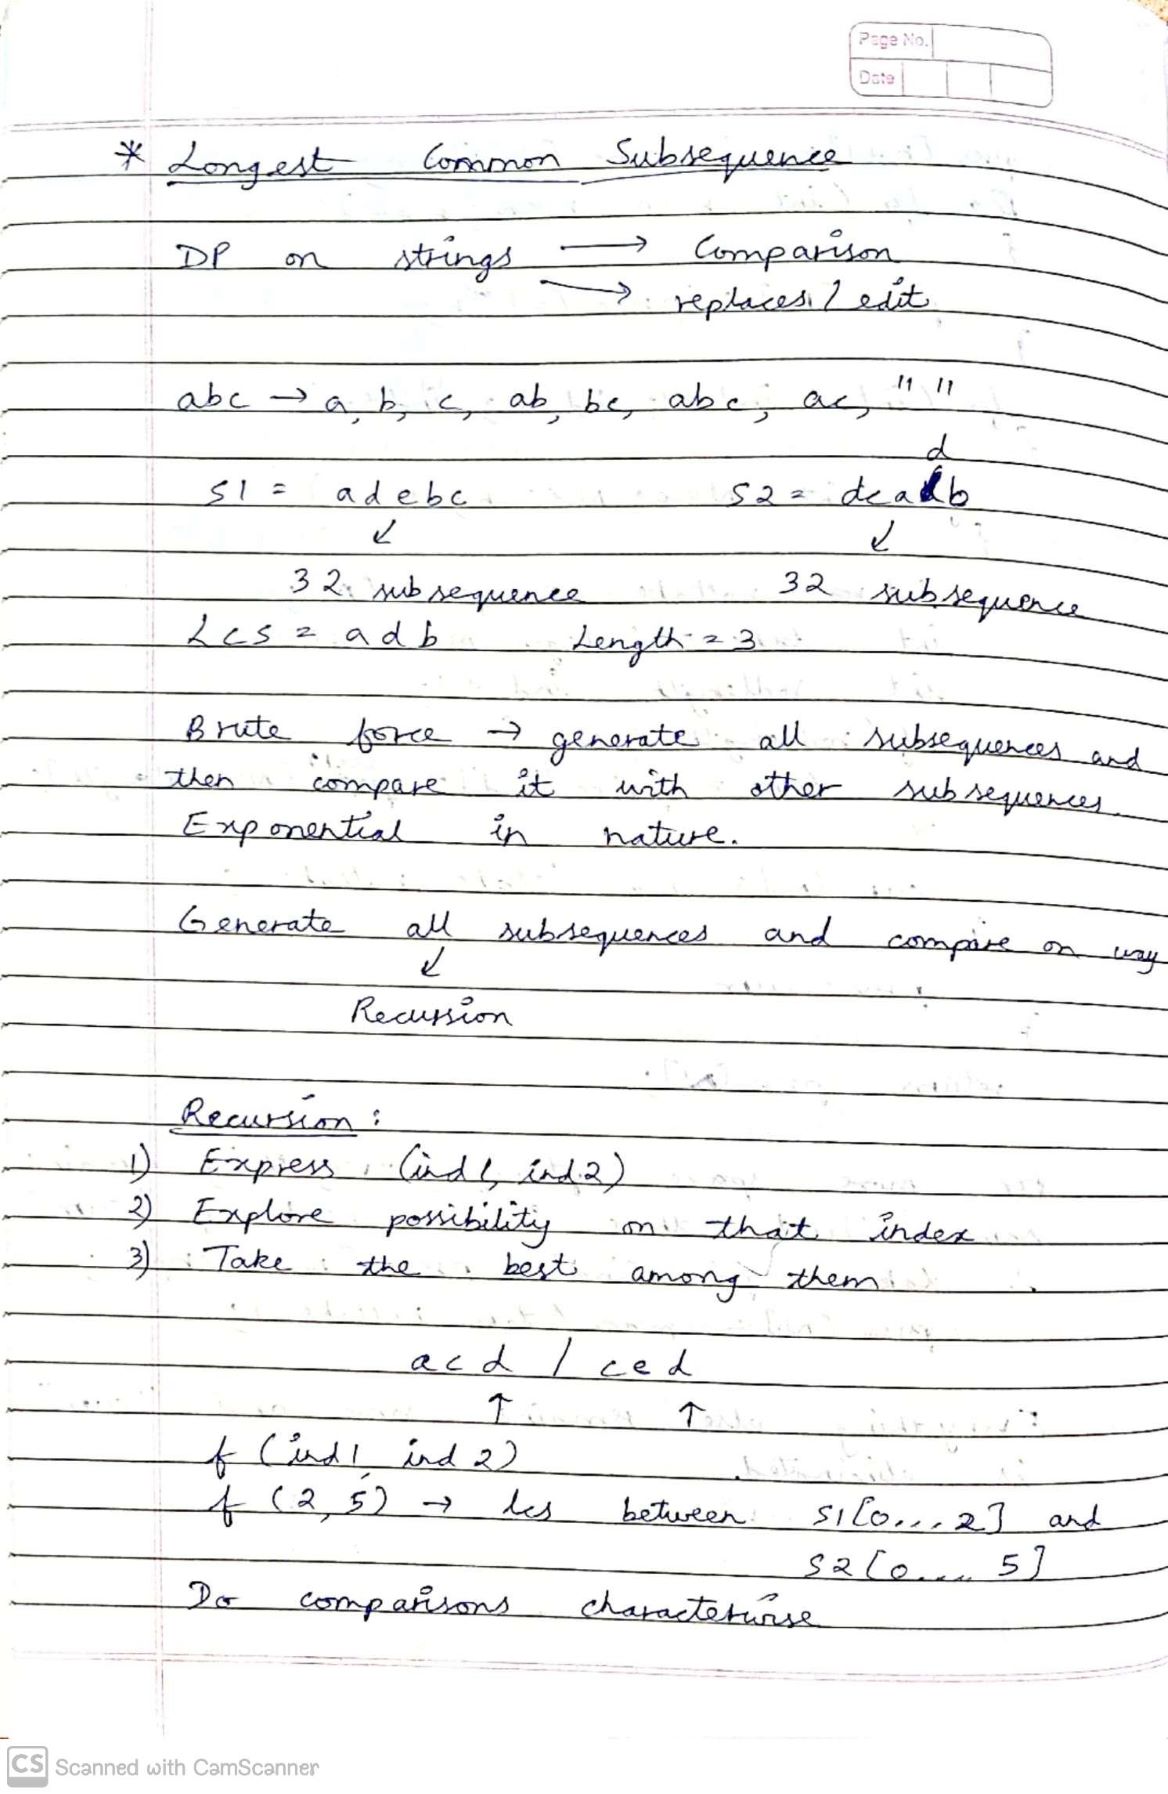 Page No.
Date
* Longest Common Subsequence
DP on strings → Comparison
→ replaces / edit
abc → a, b, c, ab, bc, abc, ac, " "
d
S1 = adebc S2 = dcab
↙ ↙
32 subsequence 32 subsequence
Lcs = adb Length = 3
Brute force → generate all subsequences and
then compare it with other subsequences.
Exponential in nature.
Generate all subsequences and compare on way
↙
Recurssion
Recursion :
1) Express (ind1, ind2)
2) Explore possibility on that index
3) Take the best among them
acd / ced
↑ ↑
f (ind1, ind2)
f (2, 5) → lcs between S1[0...2] and
S2[0.... 5]
Do comparisons characterwise
CS Scanned with CamScanner